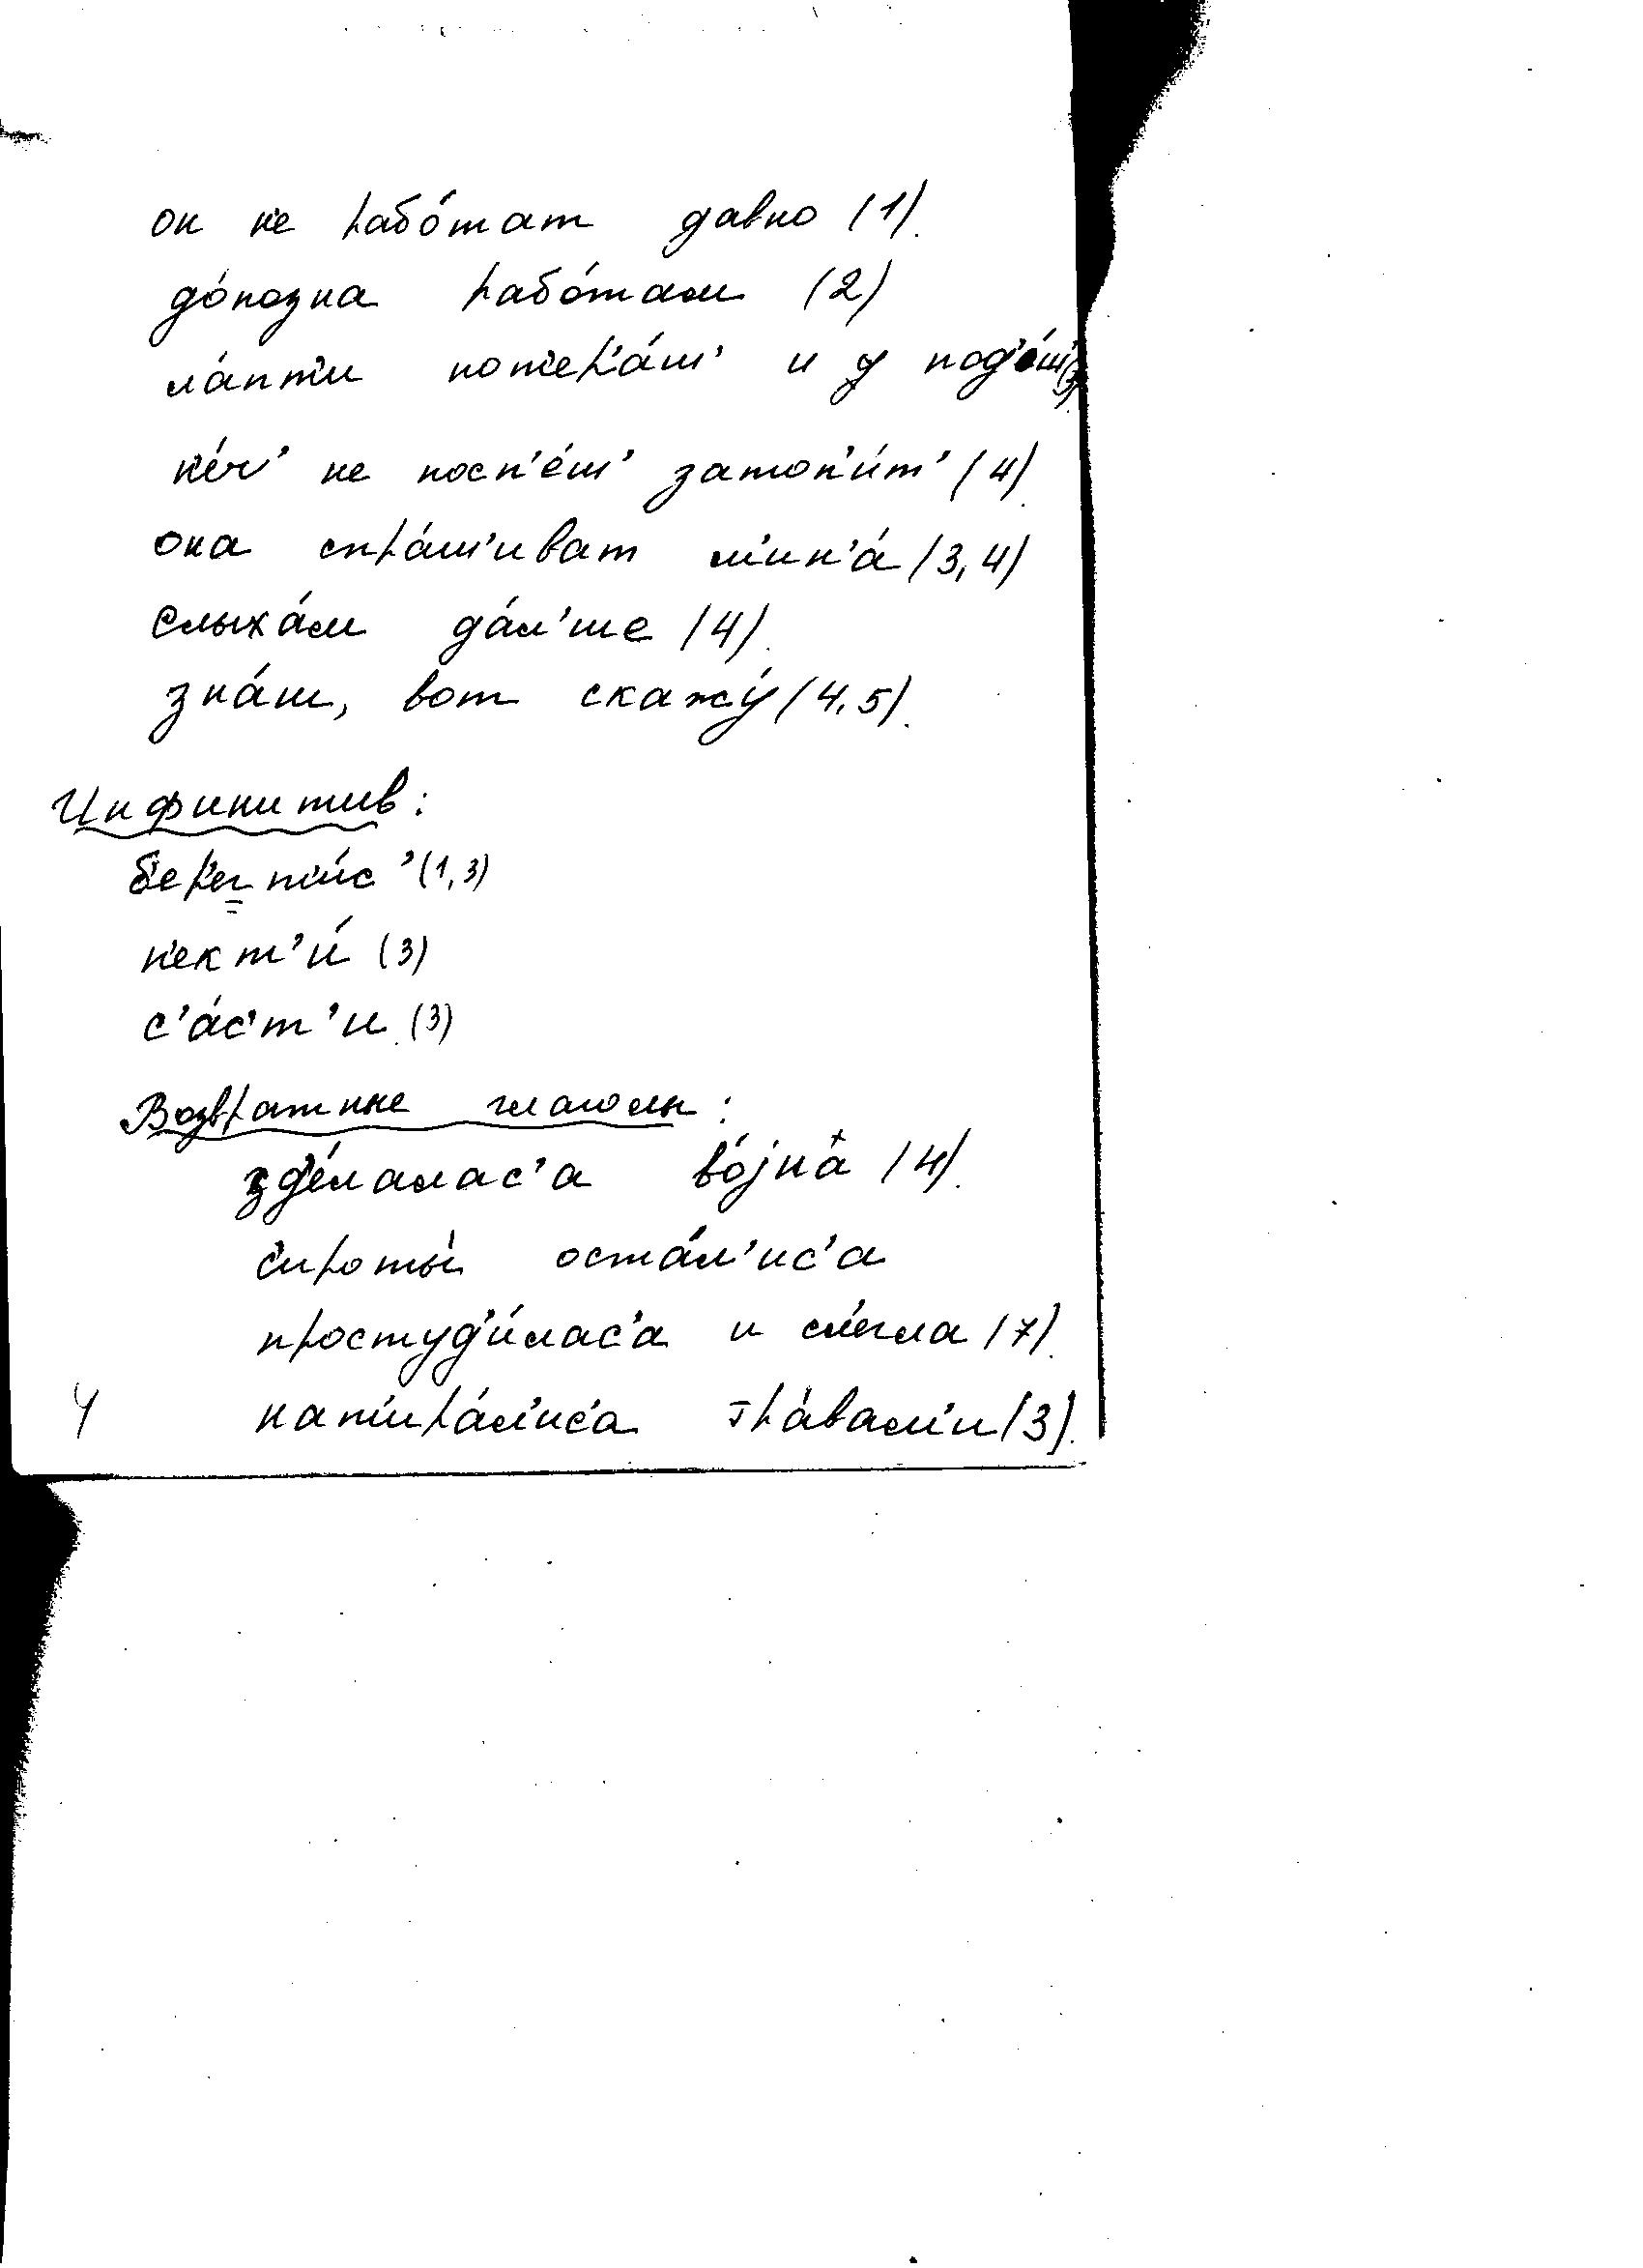 он н'е рабо́тат давно (1).
до́позна рабо́там (2)
ла́пт'и пот'ер'а́ш' и у под'о́ш' (3)
п'е́ч' не посп'е́ш' затоп'и́т' (4).
она спра́ш'иват м'ин'а́ (3,4)
слыха́м да́л'ше (4).
зна́ш, вот скажу́ (4,5).
Инфинитив:
б'ер'егт'и́с' (1,3)
п'ект'и́ (3)
с'а́с'т'и (3)
Возвратные глаголы:
зд'е́лалас'а во́jна́ (4).
с'ироты́ оста́л'ис'а
простуд'и́лас'а и сл'егла (7).
нат'ира́л'ис'а тра́вам'и (3).
4